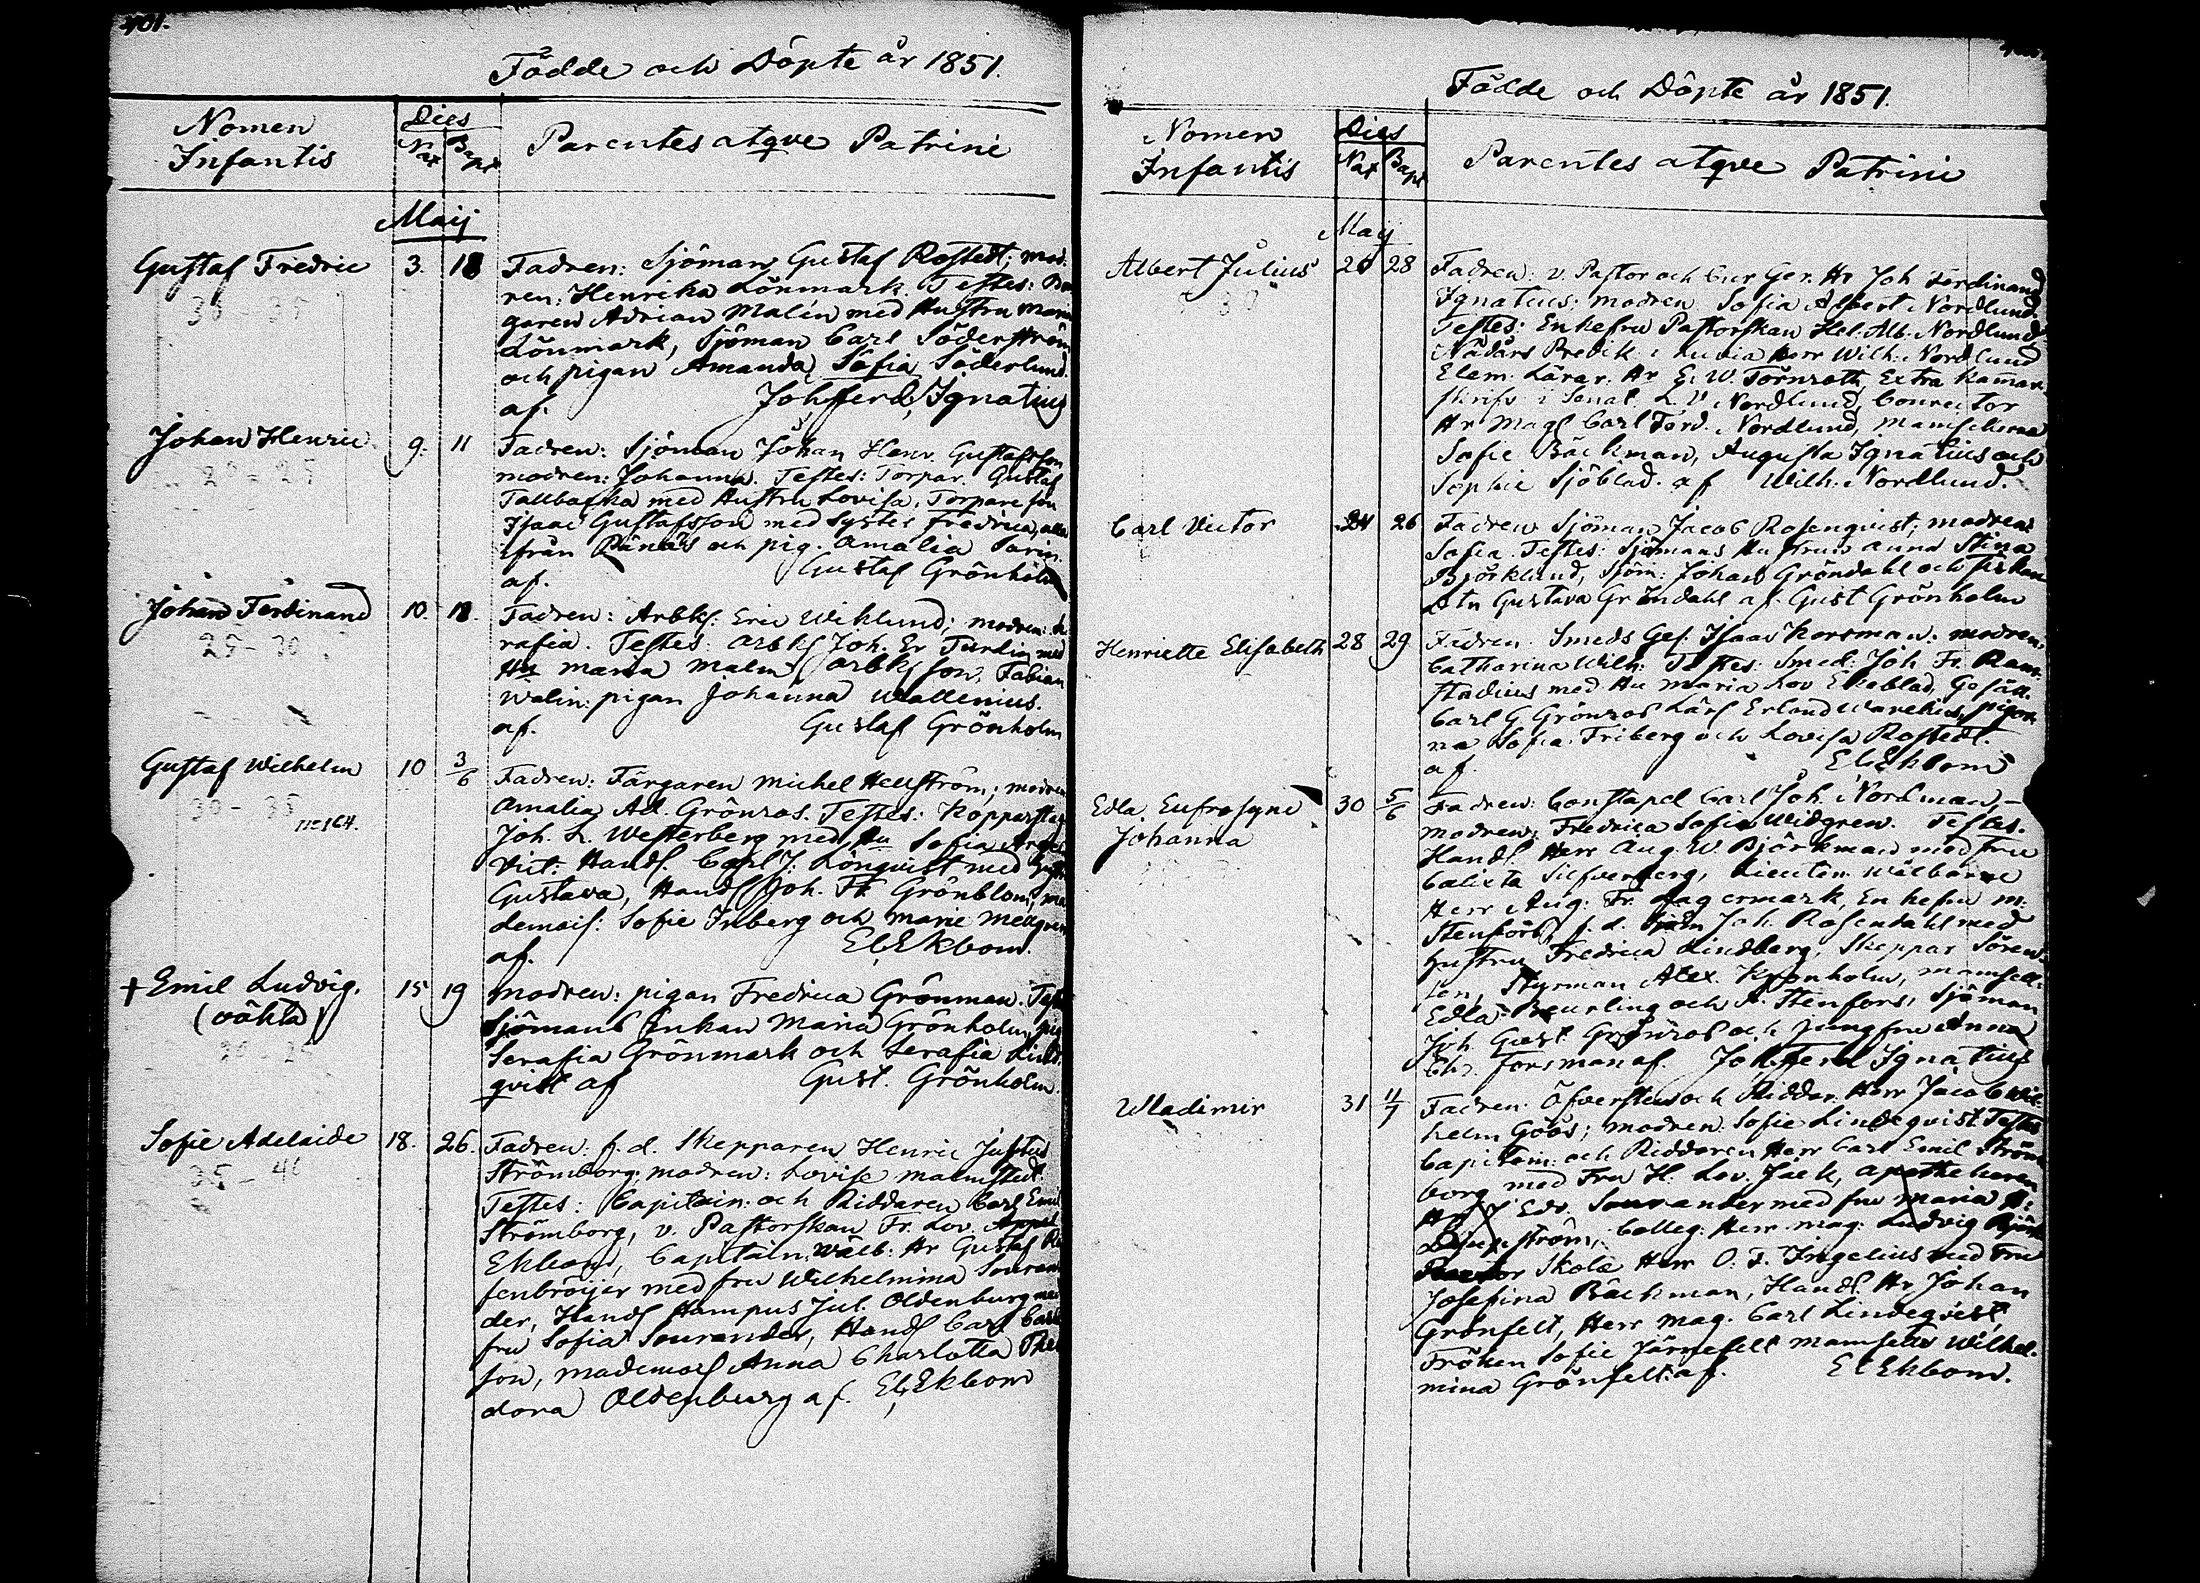 401.
Födde och Döpte år 1851.
Nomen Infantis
Dies
Nat Bapt
Parentes atqve Patrini
Maij
Gustaf Fredric 3. 18 Fadren: Sjöman Gustaf Rostedt; mod-
ren: Henrika Lönmark. Testes:
garen Adrian Malin med Hustru Maria
Lönmark, Sjöman Carl Söderström
och pigan Amanda Sofia Söderlund.
af. Joh ferd. Ignatius
Johan Henric. 9. 11 Fadren: Sjöman Johan Henr. Gustafsson
modren: Johanna. Testes: Torpar. Gustaf
Tallbacka med Hustru Lovisa, Torpare son
Isaac Gustafsson med Syster Fredrica, alla
ifrån Rånäs och pig. Amalia Sarin.
af. Gustaf Grönholm
Johan Ferdinand 10. 18. Fadren: Arbks. Eric Wiklund; modren: Se-
rafia. Testes: arbks Joh. Er Turdin med
Hu Maria Malm, arbks son, Fabian
Walin: pigan Johanna Wallenius.
af. Gustaf Grönholm
Gustaf Wilhelm 10 3/6 Fadren: Färgaren Michel Hellström; modren
Amalia Ad. Grönros. Testes: Kopparslag.
No 164.
Joh. L. Westerberg med Hu Sofia
Vict: Handl. Carl J. Lönqvist med Hustr
Gustava, Handl Joh. Fr Grönblom, ma
demois: Sofie Friberg och Marie
af. E. Ekbom.
+ Emil Ludvig. 15 19 Modren: pigan Fredrica Grönman. Test
(oäkta)
Sjömans Enkan Maria Grönholm, pig
Serafia Grönmark och Serafia Lind-
qvist af Gust. Grönholm.
Sofie Adelaide 18. 26. Fadren: f. d. Skepparen Henric Justus
Strömborg; modren: Lovise Malmstedt.
Testes: Capitain och Riddaren Carl Emil
Strömborg, v. Pastorskan Fr. Lov. Appel
Ekbom, Capitain Wälb: Hr Gustaf
fenbröijer med fru Wilhelmina Souran-
der, Handl Hampus Jul. Oldenburg med
fru Sofia Sourander, Handl Carl Carl
son, mademois Anna Charlotta Theo
dora Oldenburg af. E. Ekbom
Födde och Döpte år 1851.
Nomen Infantis
Dies
Nat Bapt
Parentes atqve Patrini
Maij
Albert Julius 26 28 Fadren: v. Pastor och Cur Ger. Hr Joh Ferdinand
Ignatius; modren Sofia Albert. Nordlund.
Testes: Enkefru Pastorskan Hel. Alb. Nordlund,
Nådårs Predik. i Luvia Herr Wilh. Nordlund
Elem. Lärar. Hr E. W. Törnroth, Extra Kammar-
skrifv i Senat. L. V. Nordlund, Conrector
Hr Mag Carl Ferd. Nordlund, Mamsellerna
Sofie Bäckman, Augusta Ignatius och
Sophie Sjöblad. af Wilh. Nordlund.
Carl Victor 24 26 Fadren: Sjöman Jacob Rosenqvist; modren:
Sofia. Testes: Sjömans Hustrun Anna Stina
Björklund, Sjöm: Johan Gröndahl och pirkan
Dtr Gustava Gröndahl af. Gust Grönholm
Henriette Elisabeth 28 29 Fadren: Smeds Ges. Isaac Korsman. modren:
Catharina Wilh: Testes: Smed: Joh Fr. Ram-
stadius med Hu Maria Lov Ekeblad, Gesäll.
Carl G Grönros Lärl Erland Warelius, pigor-
na Sofia Friberg och Lovisa Rostedt.
af. E. Ekbom
Edla. Eufrosyne Johanna 30 5/6 Fadren: Constapel Carl Joh. Nordman,
modren: Fredrica Sofia Widgren. Testes.
Handl. Herr Aug. W Björkman med fru
Calixta Silfverberg, Lieuten. Wälborne
Herr Aug: Fr. Lagermark, Enkefru M:
Stenfors, f. d. Sjöm Joh. Rosendahl med
Hustru Fredrica Lindberg, Skeppar Sören-
sen, Styrman Alex. Kyonholm, Mamsell-
Edla Beurling och A. Stenfors, Sjöman
Joh. Gust. Grönros och Jungfru Anna
Chr. Forsman af. Joh. Ferd Ignatius
Wladimir 31 11/7 Fadren: Öfversten och Riddar. Herr Jacob Wil-
helm Göös; modren: Sofie Lindeqvist. Testes
Capitain och Riddaren Herr Carl Emil Ström-
borg med Fru H. Lov. Jack, apothekeren
Hr J Edv. Sourander med fru Maria
ström, Colleg: Herr mag: Ludvig
Skole Herr O. F. Ingelius med Fru
Josefina Bäckman, Handl. Hr Johan
Grönfelt, Herr Mag. Carl Lindeqvist,
Fröken Sofie Järnefelt mamsell Wilhel-
mina Grönfelt: af. E Ekbom.